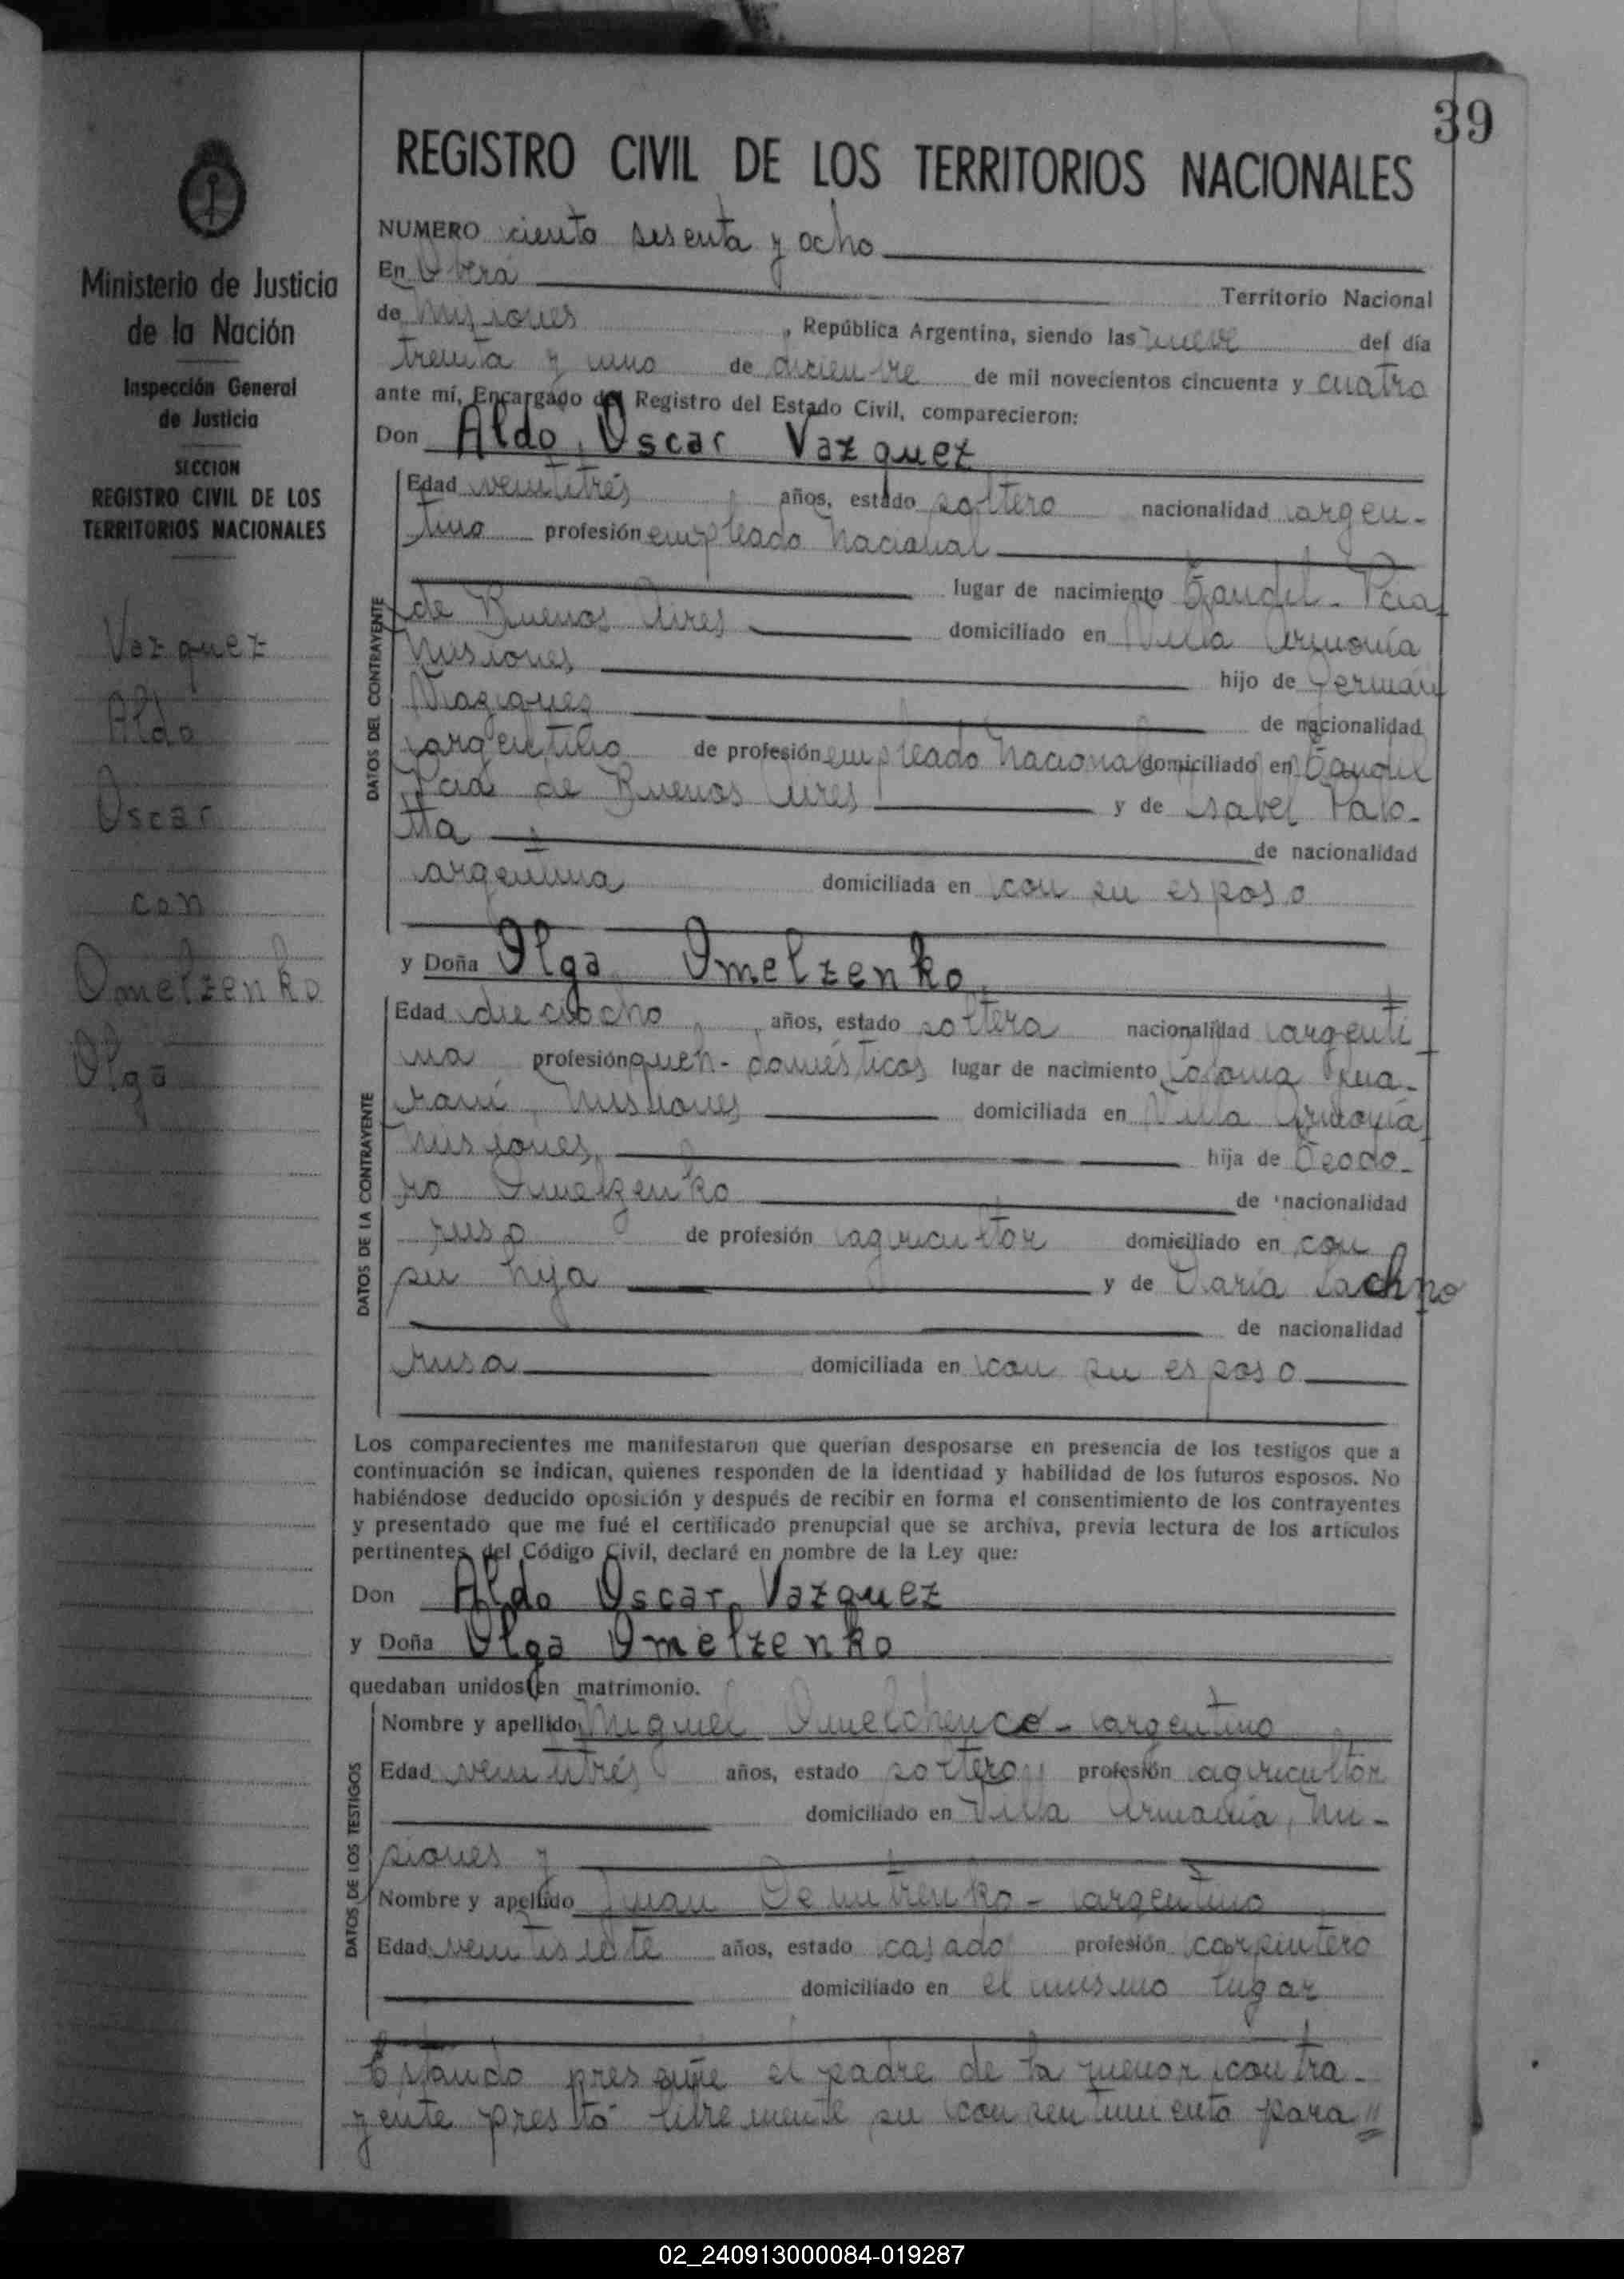 39
REGISTRO CIVIL DE LOS TERRITORIOS NACIONALES
Ministerio de Justicia
de la Nación
Inspección General
de Justicia
SECCION
REGISTRO CIVIL DE LOS
TERRITORIOS NACIONALES
Vazquez
Aldo
Oscar
con
Omelzenko
Olga
NUMERO ciento sesenta y ocho
En Oberá Territorio Nacional
de Misiones, República Argentina, siendo las nueve del día
treinta y uno de diciembre de mil novecientos cincuenta y cuatro
ante mí, Encargado del Registro del Estado Civil, comparecieron:
Don Aldo Oscar Vazquez
DATOS DEL CONTRAYENTE
Edad veintitrés años, estado soltero nacionalidad argen-
tino profesión empleado nacional
lugar de nacimiento Tandil - Pcia
de Buenos Aires domiciliado en Villa Armonía
Misiones hijo de Germán
de nacionalidad
argentino de profesión empleado nacional domiciliado en Tandil
Pcia de Buenos Aires y de Isabel Palo-
tta de nacionalidad
argentina domiciliada en con su esposo
y Doña Olga Omelzenko
DATOS DE LA CONTRAYENTE
Edad dieciocho años, estado soltera nacionalidad argenti
na profesión queh- domésticos lugar de nacimiento Colonia Gua-
raní, Misiones domiciliada en Villa Armonía
Misiones, hija de Teodo-
ro Omelzenko de nacionalidad
ruso de profesión agricultor domiciliado en con
su hija y de María Lachno
de nacionalidad
rusa domiciliada en con su esposo
Los comparecientes me manifestaron que querían desposarse en presencia de los testigos que a
continuación se indican, quienes responden de la identidad y habilidad de los futuros esposos. No
habiéndose deducido oposición y después de recibir en forma el consentimiento de los contrayentes
y presentado que me fué el certificado prenupcial que se archiva, previa lectura de los artículos
pertinentes del Código Civil, declaré en nombre de la Ley que:
Don Aldo Oscar Vazquez
y Doña Olga Omelzenko
quedaban unidos en matrimonio.
DATOS DE LOS TESTIGOS
Nombre y apellido Miguel Omelchenco - argentino
Edad veintitrés años, estado soltero, profesión agricultor
domiciliado en Villa Armonía, Mi-
siones y
Nombre y apellido Juan Demitrenko - argentino
Edad veintisiete años, estado casado profesión carpintero
domiciliado en el mismo lugar
Estando presente el padre de la menor contra-
yente prestó libremente su consentimiento para //
02_240913000084-019287